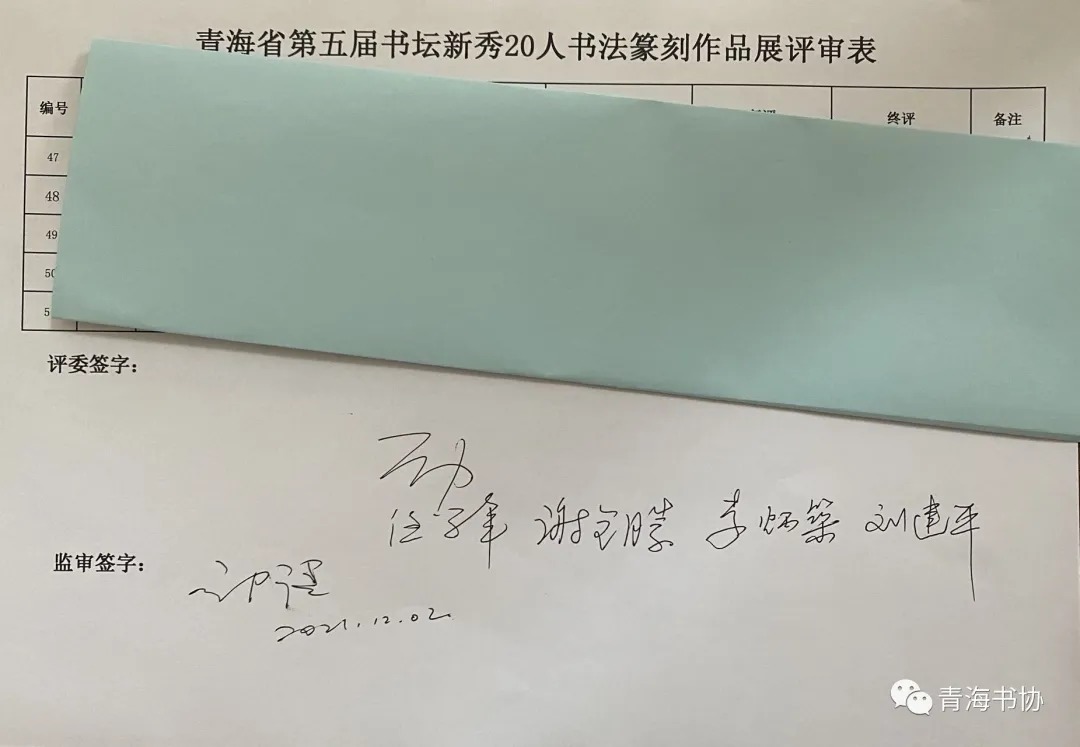 青海省第五届书坛新秀20人书法篆刻作品展评审表
编号 终评 备注
47
48
49
50
5
评委签字：
谢全胜 李炳筑 刘建平
监审签字：
2021.12.02
青海书协